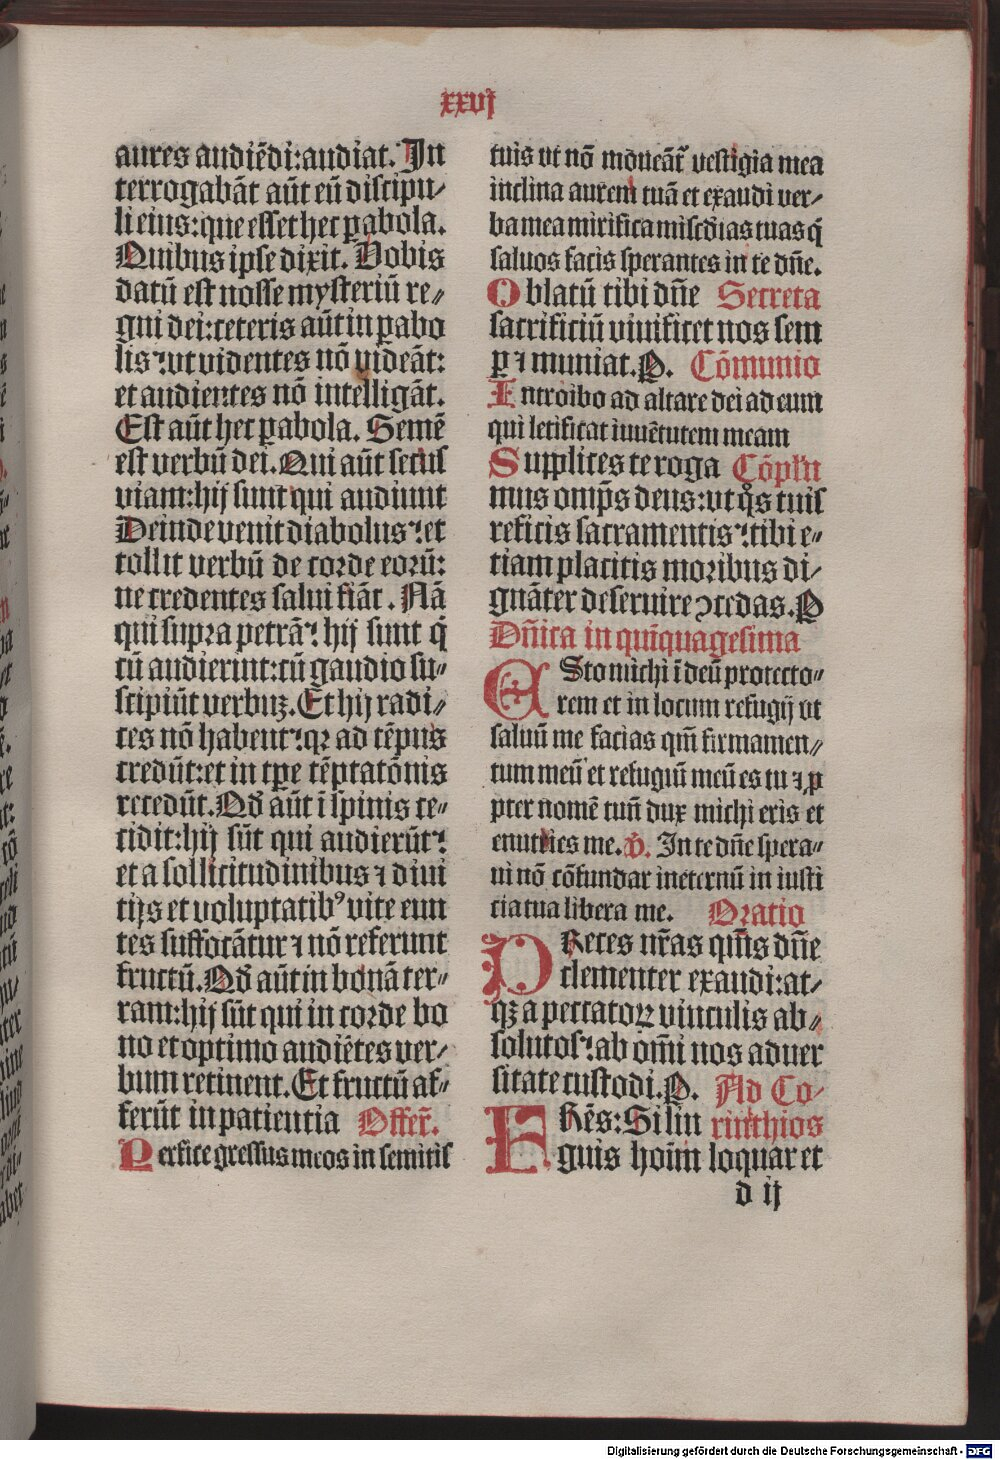 xxvj
aures audiēdi:audiat. In
terrogabāt aūt eū discipu/
li eius:que esset hec ꝑabola.
Quibus ipse dixit. Vobis
datū est nosse mysteriū re⸗
gni dei:ceteris aūt in ꝑabo
lis:ut videntes nō videāt:
et audientes nō intelligāt.
Est aūt hec ꝑabola. Semē
est verbū dei. Qui aūt secus
viam:hij sunt qui audiunt
Deinde venit diabolus:et
tollit verbū de corde eorū:
ne credentes salui fiāt. Nā
qui supra petrā: hij sunt q̄
cū audierint:cū gaudio su⸗
scipiūt verbuʒ. Et hij radi⸗
ces nō habent:qꝛ ad tēpus
credūt:et in tꝑe tēptatōnis
recedūt. Qḋ aūt ī spinis ce⸗
cidit:hij sūt qui audierūt:
et a sollicitudinibus ⁊ diui
tijs et voluptatibꝰ vite eun
tes suffocātur ⁊ nō referunt
fructū. Qḋ aūt in bonā ter⸗
ram:hij sūt qui in corde bo
no et optimo audiētes ver⸗
bum retinent. Et fructū af⸗
ferūt in patientia Offer̄.
Perfice gressus meos in semitis
tuis ut nō moueāt᷑ vestigia mea
inclina aurem tuā et exaudi ver/
ba mea mirifica misc̄dias tuas q̄
saluos facis sperantes in te dn̄e.
Oblatū tibi dn̄e Secreta
sacrificiū viuificet nos sem
ꝑ ⁊ muniat.P. Cōmunio
Introibo ad altare dei ad eum
qui letificat iuuētutem meam
Supplices te roga Cōplēn
mus omp̄s deus:ut q̊s tuis
reficis sacramentis:tibi e⸗
tiam placitis moribus di/
gnāter deseruire ↄcedas.P
Dn̄ica in quīquagesima
Esto michi ī deū protecto⸗
rem et in locum refugij ut
saluū me facias qm̄ firmamen⸗
tum meū et refugiū meū es tu ⁊ ꝓ
pter nomē tuū dux michi eris et
enutries me. V̄. In te dn̄e spera⸗
ui nō cōfundar in eternū in iusti
cia tua libera me. Oratio
Preces nr̄as qm̄s dn̄e
clementer exaudi:at/
qꝫ a peccatoꝝ vinculis ab⸗
solutos:ab om̄i nos aduer
sitate custodi.P. Ad Co/
Fr̄es:Si lin rinthios
guis hoīm loquar et
d ij
Digitalisierung gefördert durch die Deutsche Forschungsgemeinschaft - DFG